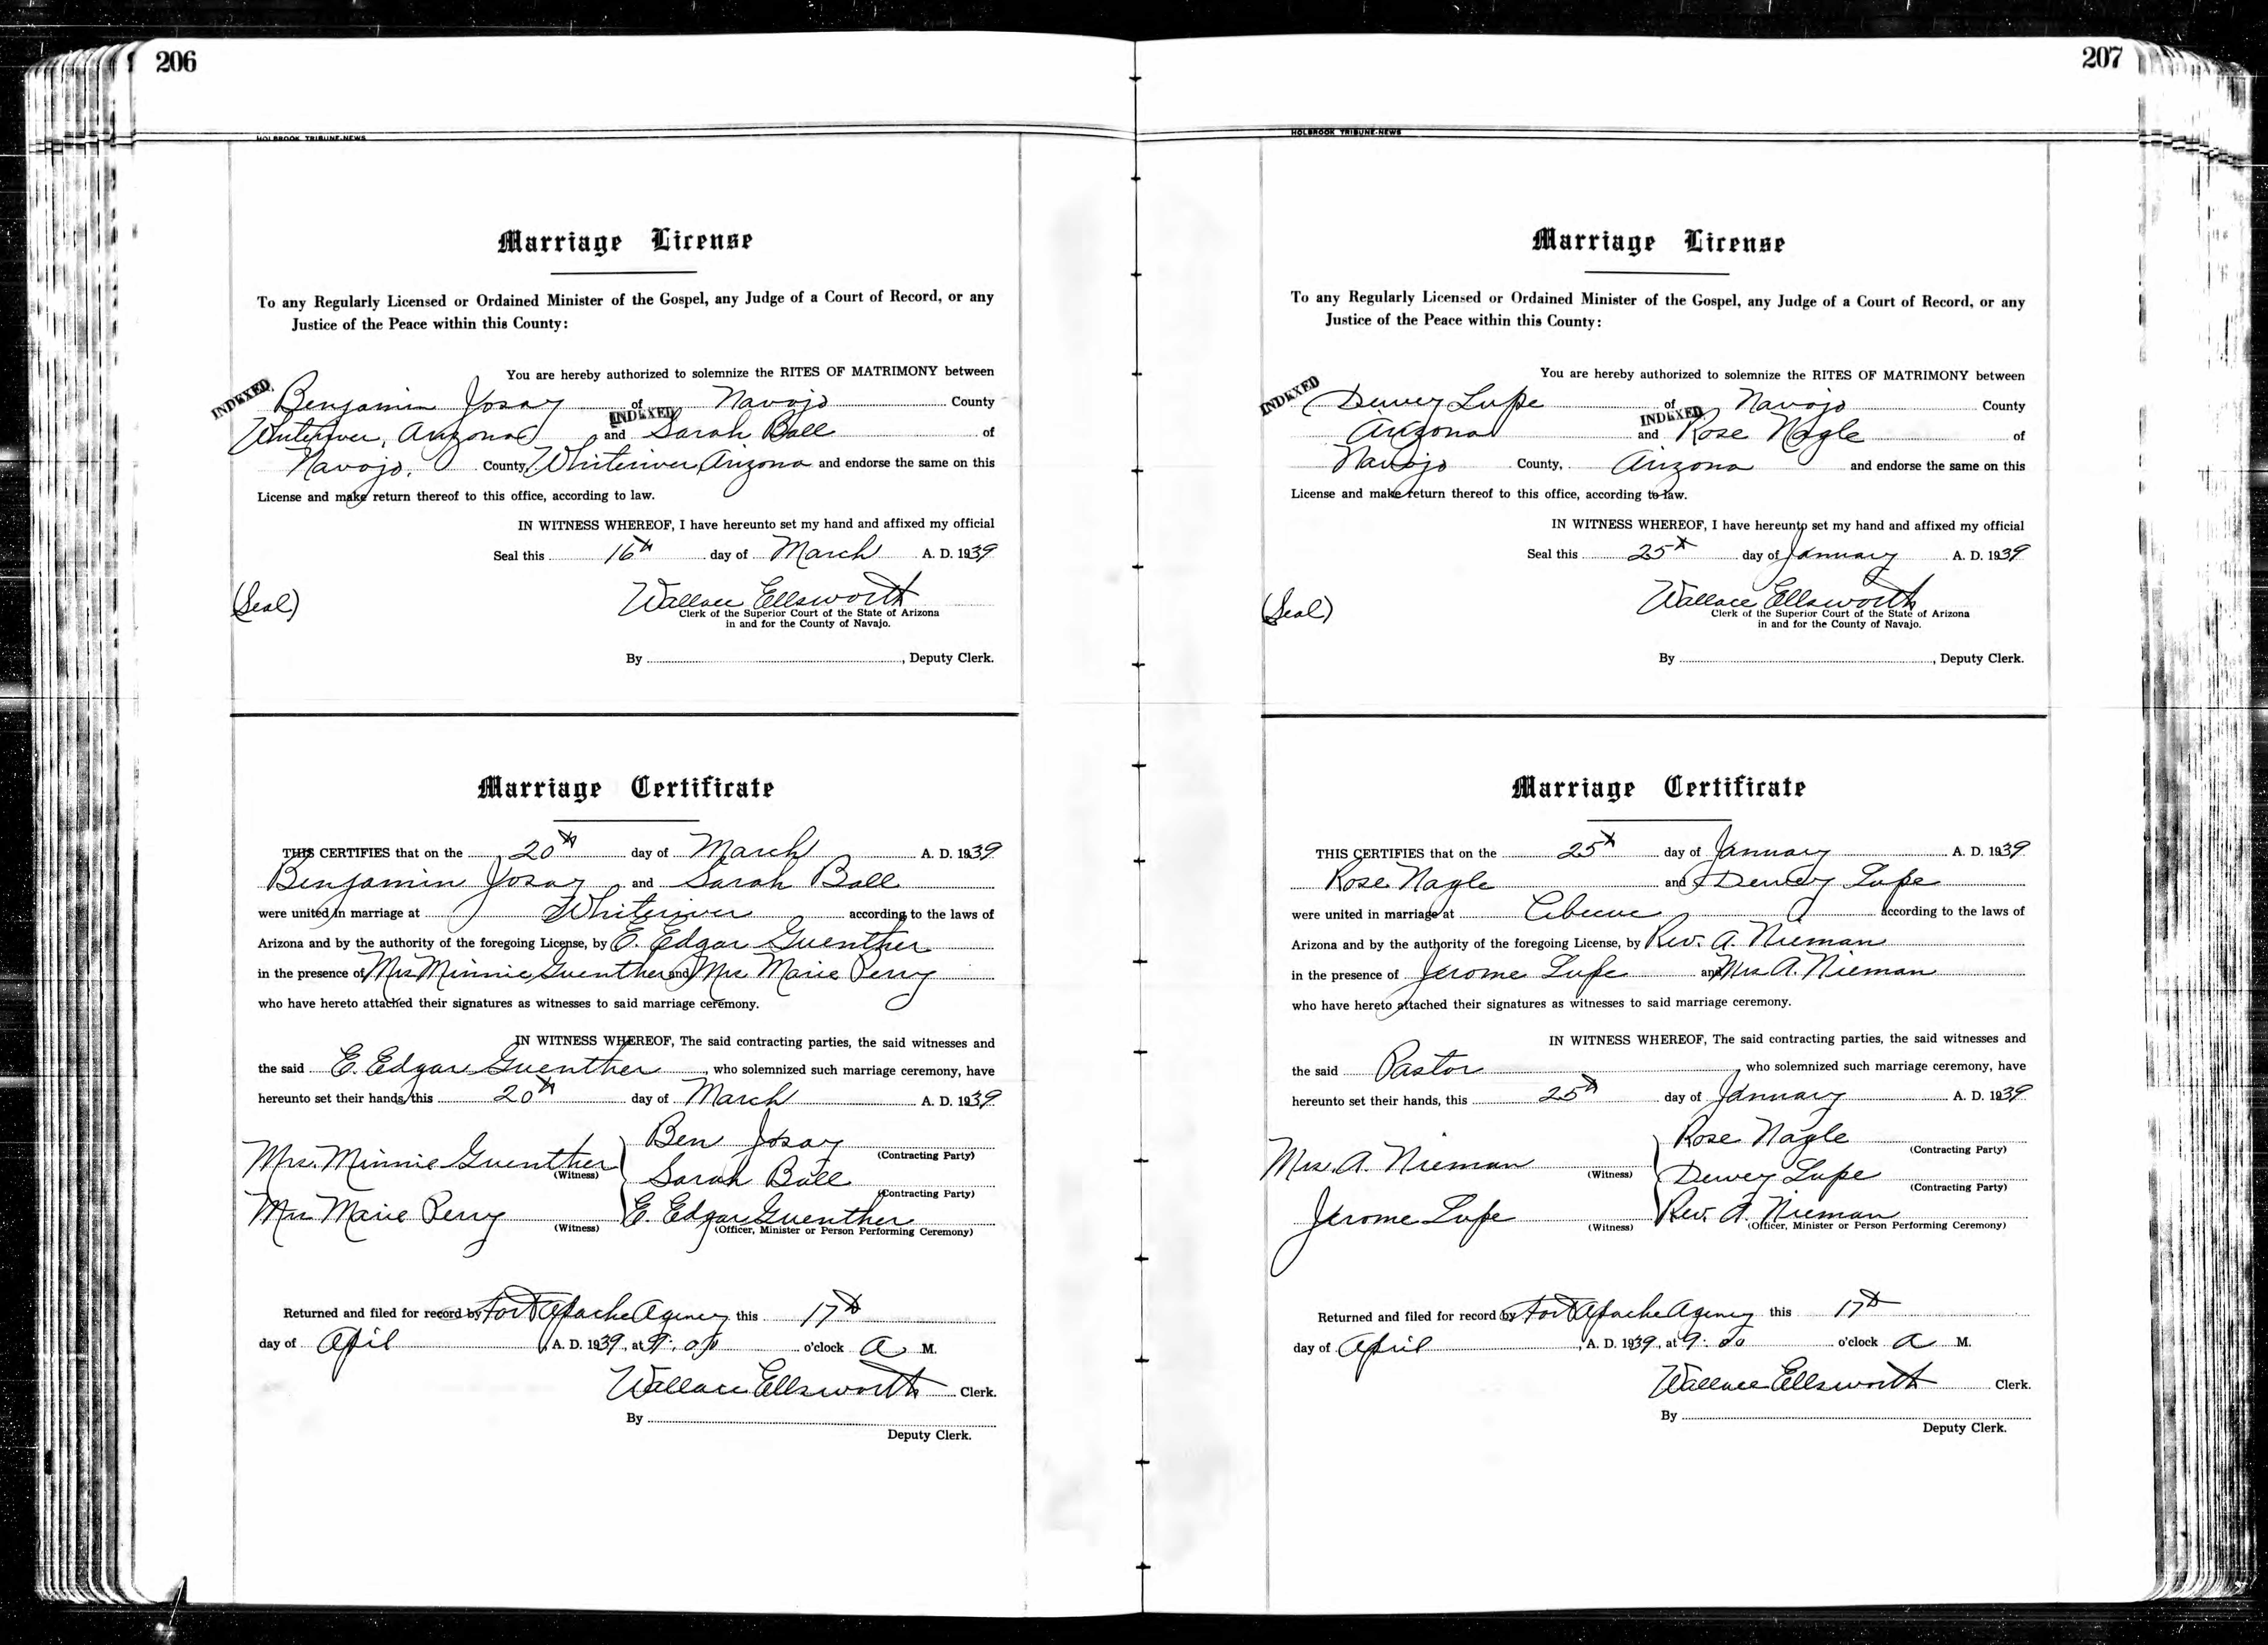 206
HOLBROOK TRIBUNE-NEWS
Marriage License
To any Regularly Licensed or Ordained Minister of the Gospel, any Judge of a Court of Record, or any
Justice of the Peace within this County:
You are hereby authorized to solemnize the RITES OF MATRIMONY between
INDEXED Benjamin Josay of Navajo County
Whiteriver, Arizona and INDEXED Sarah Ball of
Navajo, County, Whiteriver, Arizona and endorse the same on this
License and make return thereof to this office, according to law.
IN WITNESS WHEREOF, I have hereunto set my hand and affixed my official
Seal this 16th day of March A. D. 1939
(Seal) Wallace Ellsworth
Clerk of the Superior Court of the State of Arizona
in and for the County of Navajo.
By , Deputy Clerk.
Marriage Certificate
THIS CERTIFIES that on the 20th day of March A. D. 1939
Benjamin Josay and Sarah Ball
were united in marriage at Whiteriver according to the laws of
Arizona and by the authority of the foregoing License, by E. Edgar Guenther
in the presence of Mrs Minnie Guenther and Mrs Marie Perry
who have hereto attached their signatures as witnesses to said marriage ceremony.
IN WITNESS WHEREOF, The said contracting parties, the said witnesses and
the said E. Edgar Guenther, who solemnized such marriage ceremony, have
hereunto set their hands, this 20th day of March A. D. 1939
Ben Josay
(Contracting Party)
Mrs. Minnie Guenther
(Witness)
Sarah Ball
(Contracting Party)
Mrs Marie Perry
(Witness)
E. Edgar Guenther
(Officer, Minister or Person Performing Ceremony)
Returned and filed for record by Fort Apache Agency this 17th
day of April, A. D. 1939, at 9:00 o'clock A M.
Wallace Ellsworth Clerk.
By
Deputy Clerk.
207
HOLBROOK TRIBUNE-NEWS
Marriage License
To any Regularly Licensed or Ordained Minister of the Gospel, any Judge of a Court of Record, or any
Justice of the Peace within this County:
You are hereby authorized to solemnize the RITES OF MATRIMONY between
INDEXED Dewey Lupe of Navajo County
Arizona and INDEXED Rose Nagle of
Navajo County, Arizona and endorse the same on this
License and make return thereof to this office, according to law.
IN WITNESS WHEREOF, I have hereunto set my hand and affixed my official
Seal this 25th day of January A. D. 1939
(Seal) Wallace Ellsworth
Clerk of the Superior Court of the State of Arizona
in and for the County of Navajo.
By , Deputy Clerk.
Marriage Certificate
THIS CERTIFIES that on the 25th day of January A. D. 1939
Rose Nagle and Dewey Lupe
were united in marriage at Cibecue according to the laws of
Arizona and by the authority of the foregoing License, by Rev. A. Nieman
in the presence of Jerome Lupe and Mrs A. Nieman
who have hereto attached their signatures as witnesses to said marriage ceremony.
IN WITNESS WHEREOF, The said contracting parties, the said witnesses and
the said Pastor, who solemnized such marriage ceremony, have
hereunto set their hands, this 25th day of January A. D. 1939
Rose Nagle
(Contracting Party)
Mrs. A. Nieman
(Witness)
Dewey Lupe
(Contracting Party)
Jerome Lupe
(Witness)
Rev. A. Nieman
(Officer, Minister or Person Performing Ceremony)
Returned and filed for record by Fort Apache Agency this 17th
day of April, A. D. 1939, at 9:00 o'clock A M.
Wallace Ellsworth Clerk.
By
Deputy Clerk.